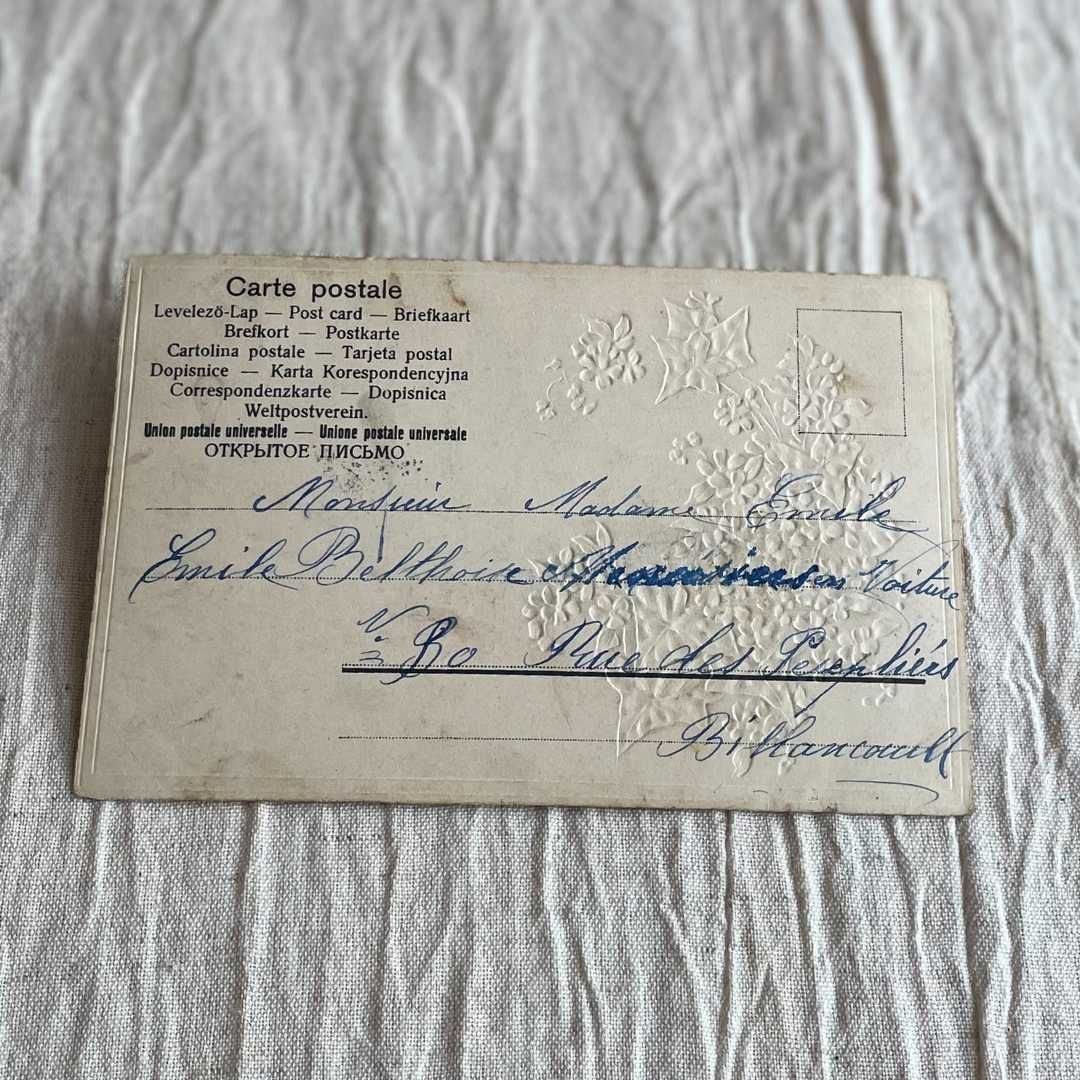 Carte postale
Levelező-Lap — Post card — Briefkaart
Brefkort — Postkarte
Cartolina postale — Tarjeta postal
Dopisnice — Karta Korespondencyjna
Correspondenzkarte — Dopisnica
Weltpostverein.
Union postale universelle — Unione postale universale
ОТКРЫТОЕ ПИСЬМО
Monsieur Madame Emile
Emile en Voiture
No Rue des
Billancourt